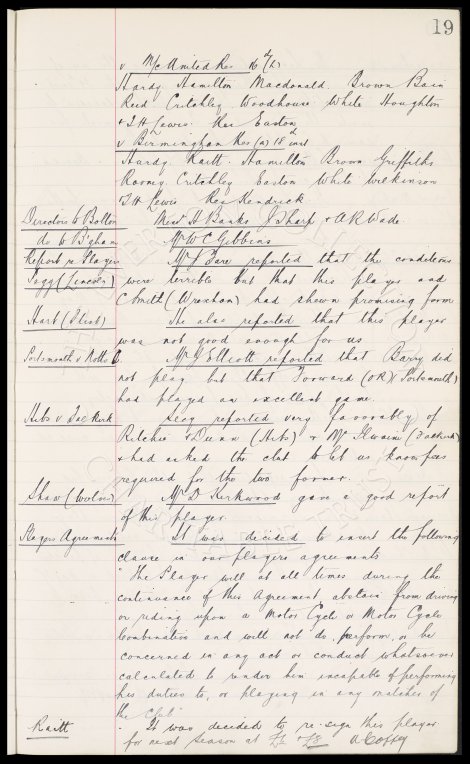 19
v Mc United Res 16th (h)
Hardy. Hamilton Macdonald. Brown Bain
Reed Critchley Woodhouse White Houghton
& T. H. Lewis. Res Easton
v Birmingham Res (a) 18th inst
Hardy Raitt. Hamilton Brown Griffiths
Rooney. Critchley Easton White Wilkinson
T. H Lewis Res Kendrick.
Directors to Bolton Messrs H Banks J Sharp & A R Wade
do to B'gham Mr W C Gibbins
Report re Players Mr J Fare reported that the conditions
(Lincoln) were terrible but that this player and
C Smith (Wrexham) had shewn promising form
Hart He also reported that this player
was not good enough for us
Portsmouth v Notts C. Mr J Elliott reported that Barry did
not play but that Forward (OR) Portsmouth)
had played an excellent game.
Hibs v Falkirk Secy reported very favorably of
Ritchie & Dunn (Hibs) & Mc Ilwain (Falkirk)
& had asked the club to let us know fees
required for the two former.
Shaw (Wolves) Mr D Kirkwood gave a good report
of this player.
Players Agreements It was decided to insert the following
clause in our players agreements
"The Player will at all times during the
continuance of this Agreement, abstain from driving
or riding upon a Motor Cycle or Motor Cycle
Combination and will not do, perform, or be
concerned in any act or conduct whatsoever
calculated to render him incapable of performing
his duties to, or playing in any matches of
the Club"
Raitt It was decided to re-sign this player
for next season at